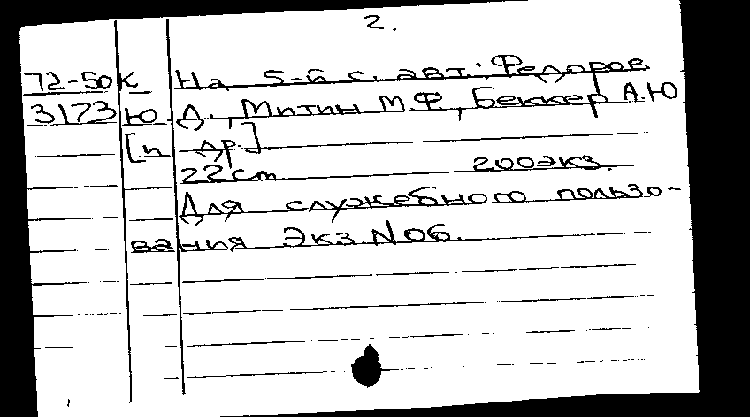 2.
72-50к На 5-й с. авт.: Федоров
3173 Ю.Д., Митин М.Ф, Беккер А.Ю
[и др.]
22см 200экз.
Для служебного пользо-
вания Экз N06.